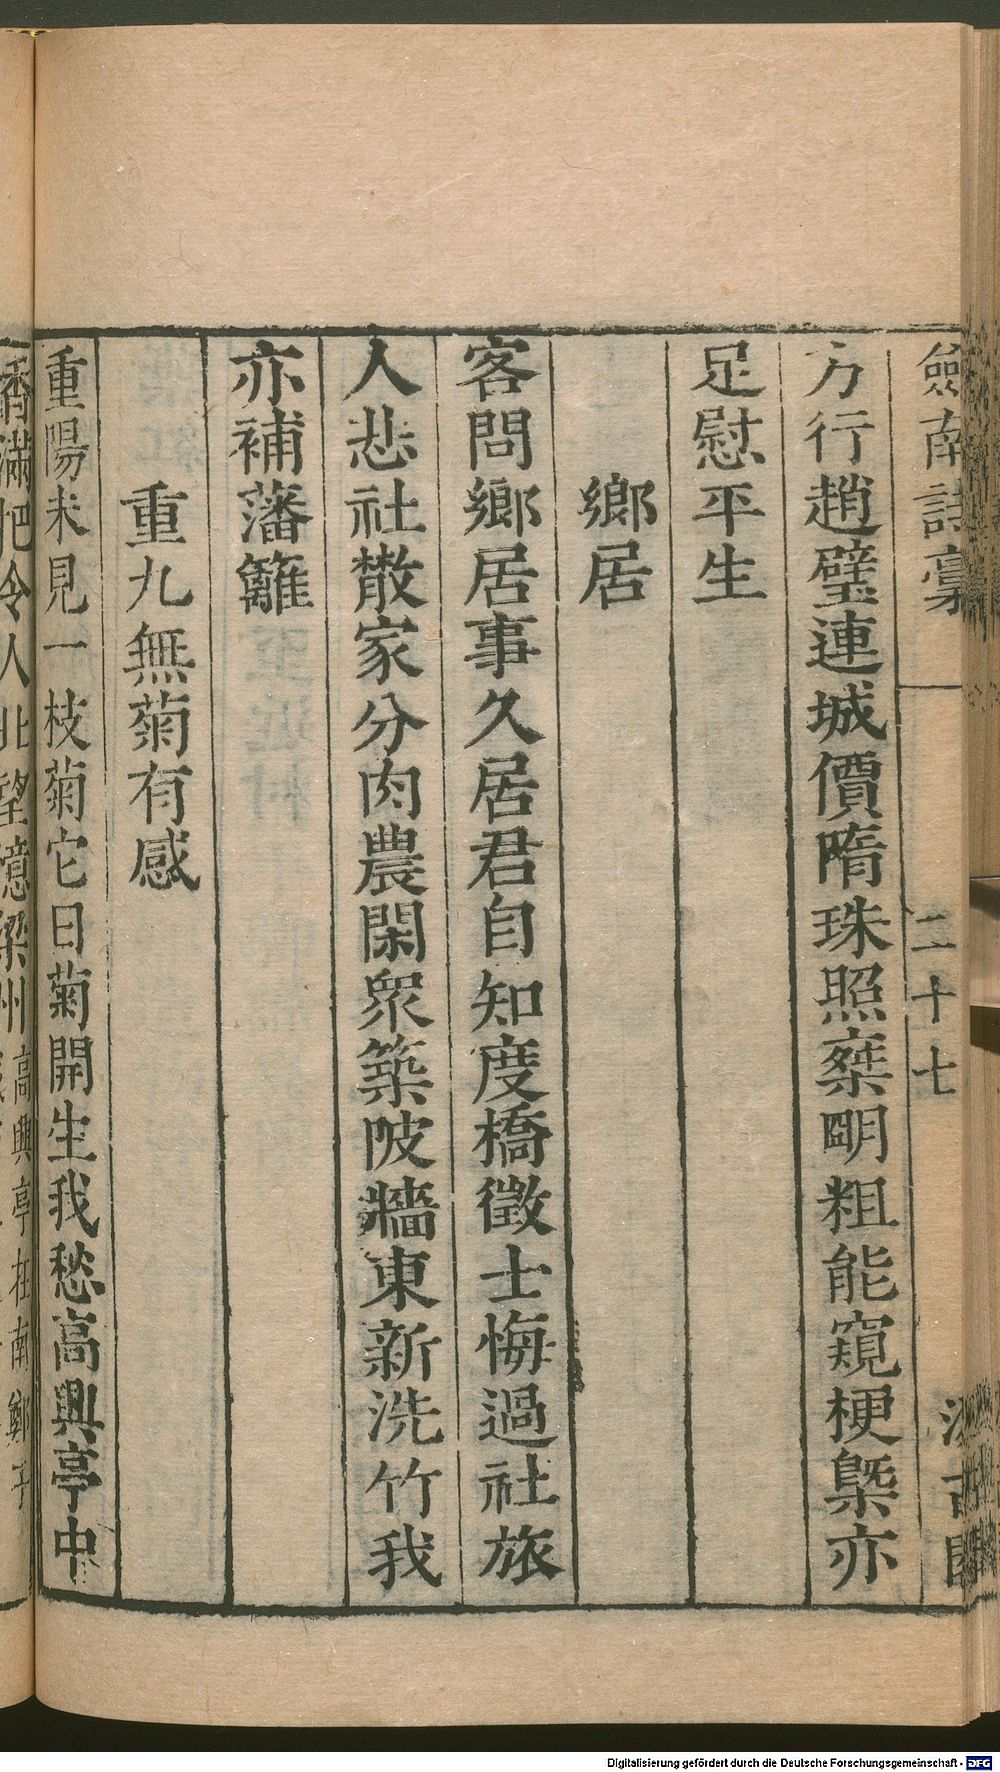 劔南詩稾
二十七
方行趙璧連城價隋珠照椉明粗能窺梗槩亦
足慰平生
鄉居
客問鄉居事久居君自知度橋徵士悔過社旅
人悲社散家分肉農閑衆築陂牆東新洗竹我
亦補藩籬
重九無菊有感
重陽未見一枝菊它日菊開生我愁高興亭中
香滿把令人北望憶梁州高興亭在南鄭子
Digitalisierung gefördert durch die Deutsche Forschungsgemeinschaft - DFG